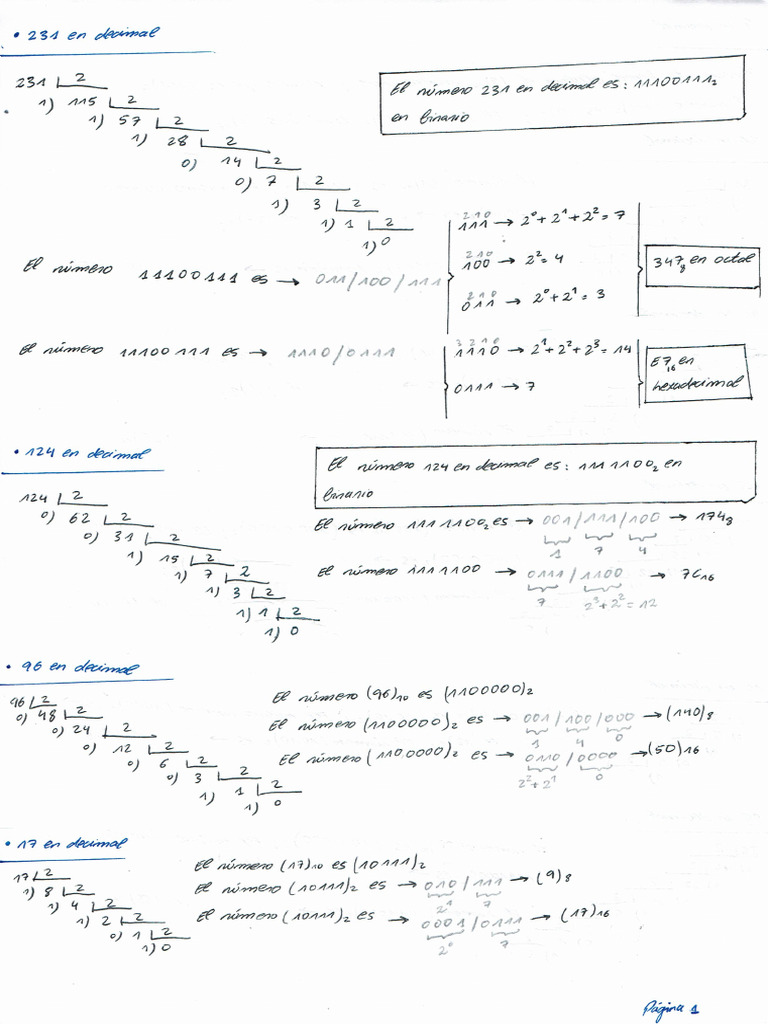 • 231 en decimal
231 | 2
1) 115 | 2
1) 57 | 2
1) 28 | 2
0) 14 | 2
0) 7 | 2
1) 3 | 2
1) 1 | 2
1) 0
El número 231 en decimal es: 11100111₂
en binario
El número 11100111 es → 011/100/111
210
111 → 2⁰+2¹+2² = 7
210
100 → 2² = 4
210
011 → 2⁰+2¹ = 3
347₈ en octal
El número 11100111 es → 1110/0111
3210
1110 → 2¹+2²+2³ = 14
0111 → 7
E7₁₆ en
hexadecimal
• 124 en decimal
124 | 2
0) 62 | 2
0) 31 | 2
1) 15 | 2
1) 7 | 2
1) 3 | 2
1) 1 | 2
1) 0
El número 124 en decimal es: 1111100₂ en
binario
El número 1111100₂ es → 001/111/100 → 174₈
1 7 4
El número 1111100 → 0111/1100 → 7C₁₆
7 2³+2² = 12
• 96 en decimal
96 | 2
0) 48 | 2
0) 24 | 2
0) 12 | 2
0) 6 | 2
0) 3 | 2
1) 1 | 2
1) 0
El número (96)₁₀ es (1100000)₂
El número (1100000)₂ es → 001/100/000 → (140)₈
1 4 0
El número (1100000)₂ es → 0110/0000 → (50)₁₆
2²+2¹ 0
• 17 en decimal
17 | 2
1) 8 | 2
1) 4 | 2
1) 2 | 2
0) 1 | 2
1) 0
El número (17)₁₀ es (10111)₂
El número (10111)₂ es → 010/111 → (9)₈
2¹ 7
El número (10111)₂ es → 0001/0111 → (17)₁₆
2⁰ 7
Página 1